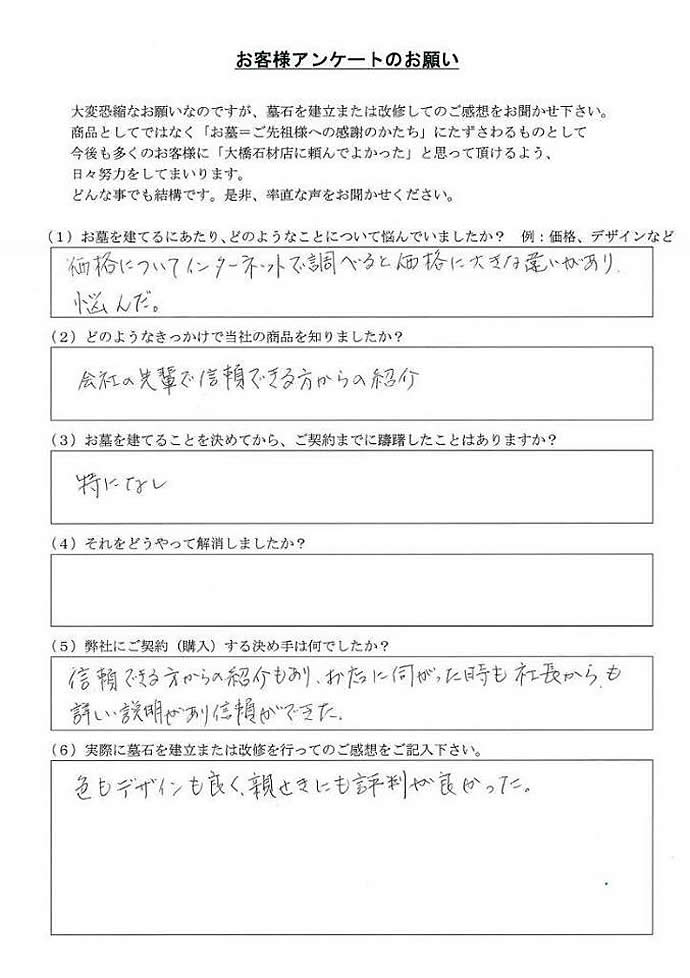 お客様アンケートのお願い
大変恐縮なお願いなのですが、墓石を建立または改修してのご感想をお聞かせ下さい。
商品としてではなく「お墓＝ご先祖様への感謝のかたち」にたずさわるものとして
今後も多くのお客様に「大橋石材店に頼んでよかった」と思って頂けるよう、
日々努力をしてまいります。
どんな事でも結構です。是非、率直な声をお聞かせください。
（1）お墓を建てるにあたり、どのようなことについて悩んでいましたか？　例：価格、デザインなど
価格についてインターネットで調べると価格に大きな違いがあり、
悩んだ。
（2）どのようなきっかけで当社の商品を知りましたか？
会社の先輩で信頼できる方からの紹介
（3）お墓を建てることを決めてから、ご契約までに躊躇したことはありますか？
特になし
（4）それをどうやって解消しましたか？
（5）弊社にご契約（購入）する決め手は何でしたか？
信頼できる方からの紹介もあり、お店に伺がった時も社長から、も
詳しい説明があり信頼ができた。
（6）実際に墓石を建立または改修を行ってのご感想をご記入下さい。
色もデザインも良く、親せきにも評判が良かった。